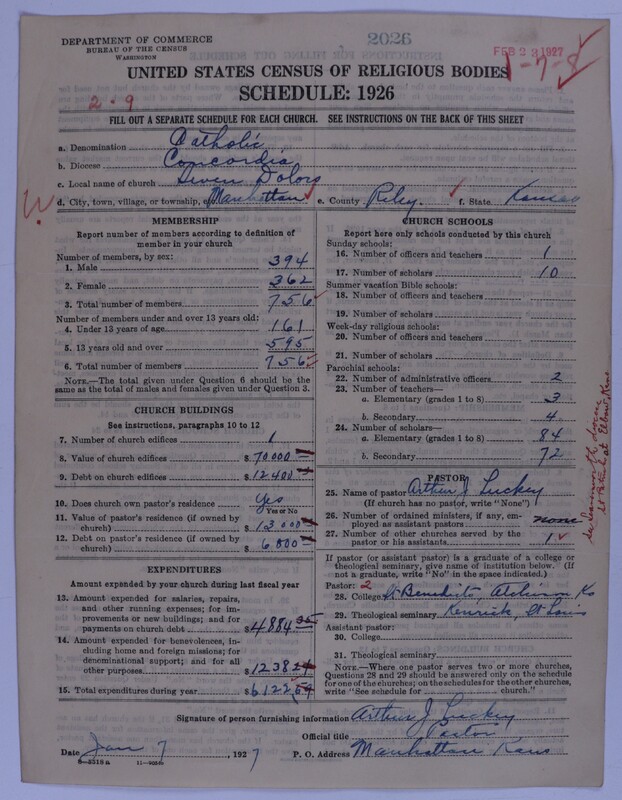 DEPARTMENT OF COMMERCE
BUREAU OF THE CENSUS
WASHINGTON
2026
FEB 23 1927
1-7-8
UNITED STATES CENSUS OF RELIGIOUS BODIES
SCHEDULE: 1926
2-9
FILL OUT A SEPARATE SCHEDULE FOR EACH CHURCH. SEE INSTRUCTIONS ON THE BACK OF THIS SHEET
a. Denomination Catholic
b. Diocese Concordia
c. Local name of church Seven Dolors
d. City, town, village, or township, of Manhattan e. County Riley. f. State Kansas
MEMBERSHIP
Report number of members according to definition of member in your church
Number of members, by sex:
1. Male 394
2. Female 362
3. Total number of members 756
Number of members under and over 13 years old:
4. Under 13 years of age 161
5. 13 years old and over 595
6. Total number of members 756
NOTE.—The total given under Question 6 should be the
same as the total of males and females given under Question 3.
CHURCH BUILDINGS
See instructions, paragraphs 10 to 12
7. Number of church edifices 1
8. Value of church edifices $ 70,000
9. Debt on church edifices $ 12,400
10. Does church own pastor's residence Yes
Yes or No
11. Value of pastor's residence (if owned by
church) $ 13,000
12. Debt on pastor's residence (if owned by
church) $ 6,800
EXPENDITURES
Amount expended by your church during last fiscal year
13. Amount expended for salaries, repairs,
and other running expenses; for im-
provements or new buildings; and for
payments on church debt $ 4884
14. Amount expended for benevolences, in-
cluding home and foreign missions; for
denominational support; and for all
other purposes $ 1238
15. Total expenditures during year $ 6122
CHURCH SCHOOLS
Report here only schools conducted by this church
Sunday schools:
16. Number of officers and teachers 1
17. Number of scholars 10
Summer vacation Bible schools:
18. Number of officers and teachers
19. Number of scholars
Week-day religious schools:
20. Number of officers and teachers
21. Number of scholars
Parochial schools:
22. Number of administrative officers 2
23. Number of teachers—
a. Elementary (grades 1 to 8) 3
b. Secondary 4
24. Number of scholars—
a. Elementary (grades 1 to 8) 84
b. Secondary 72
PASTOR
25. Name of pastor Arthur J Luckey
(If church has no pastor, write "None")
26. Number of ordained ministers, if any, em-
ployed as assistant pastors none
27. Number of other churches served by the
pastor or his assistants 1
If pastor (or assistant pastor) is a graduate of a college or
theological seminary, give name of institution below. (If
not a graduate, write "No" in the space indicated.)
Pastor: 2
28. College St Benedicts Atchison Ks
29. Theological seminary Kenrick, St Louis
Assistant pastor:
30. College
31. Theological seminary
NOTE.—Where one pastor serves two or more churches,
Questions 28 and 29 should be answered only on the schedule
for one of the churches; on the schedules for the other churches,
write "See schedule for church."
Signature of person furnishing information Arthur J Luckey
Official title Pastor
Date Jan 7, 1927 P. O. Address Manhattan Kans
8—5519a 11—9054b